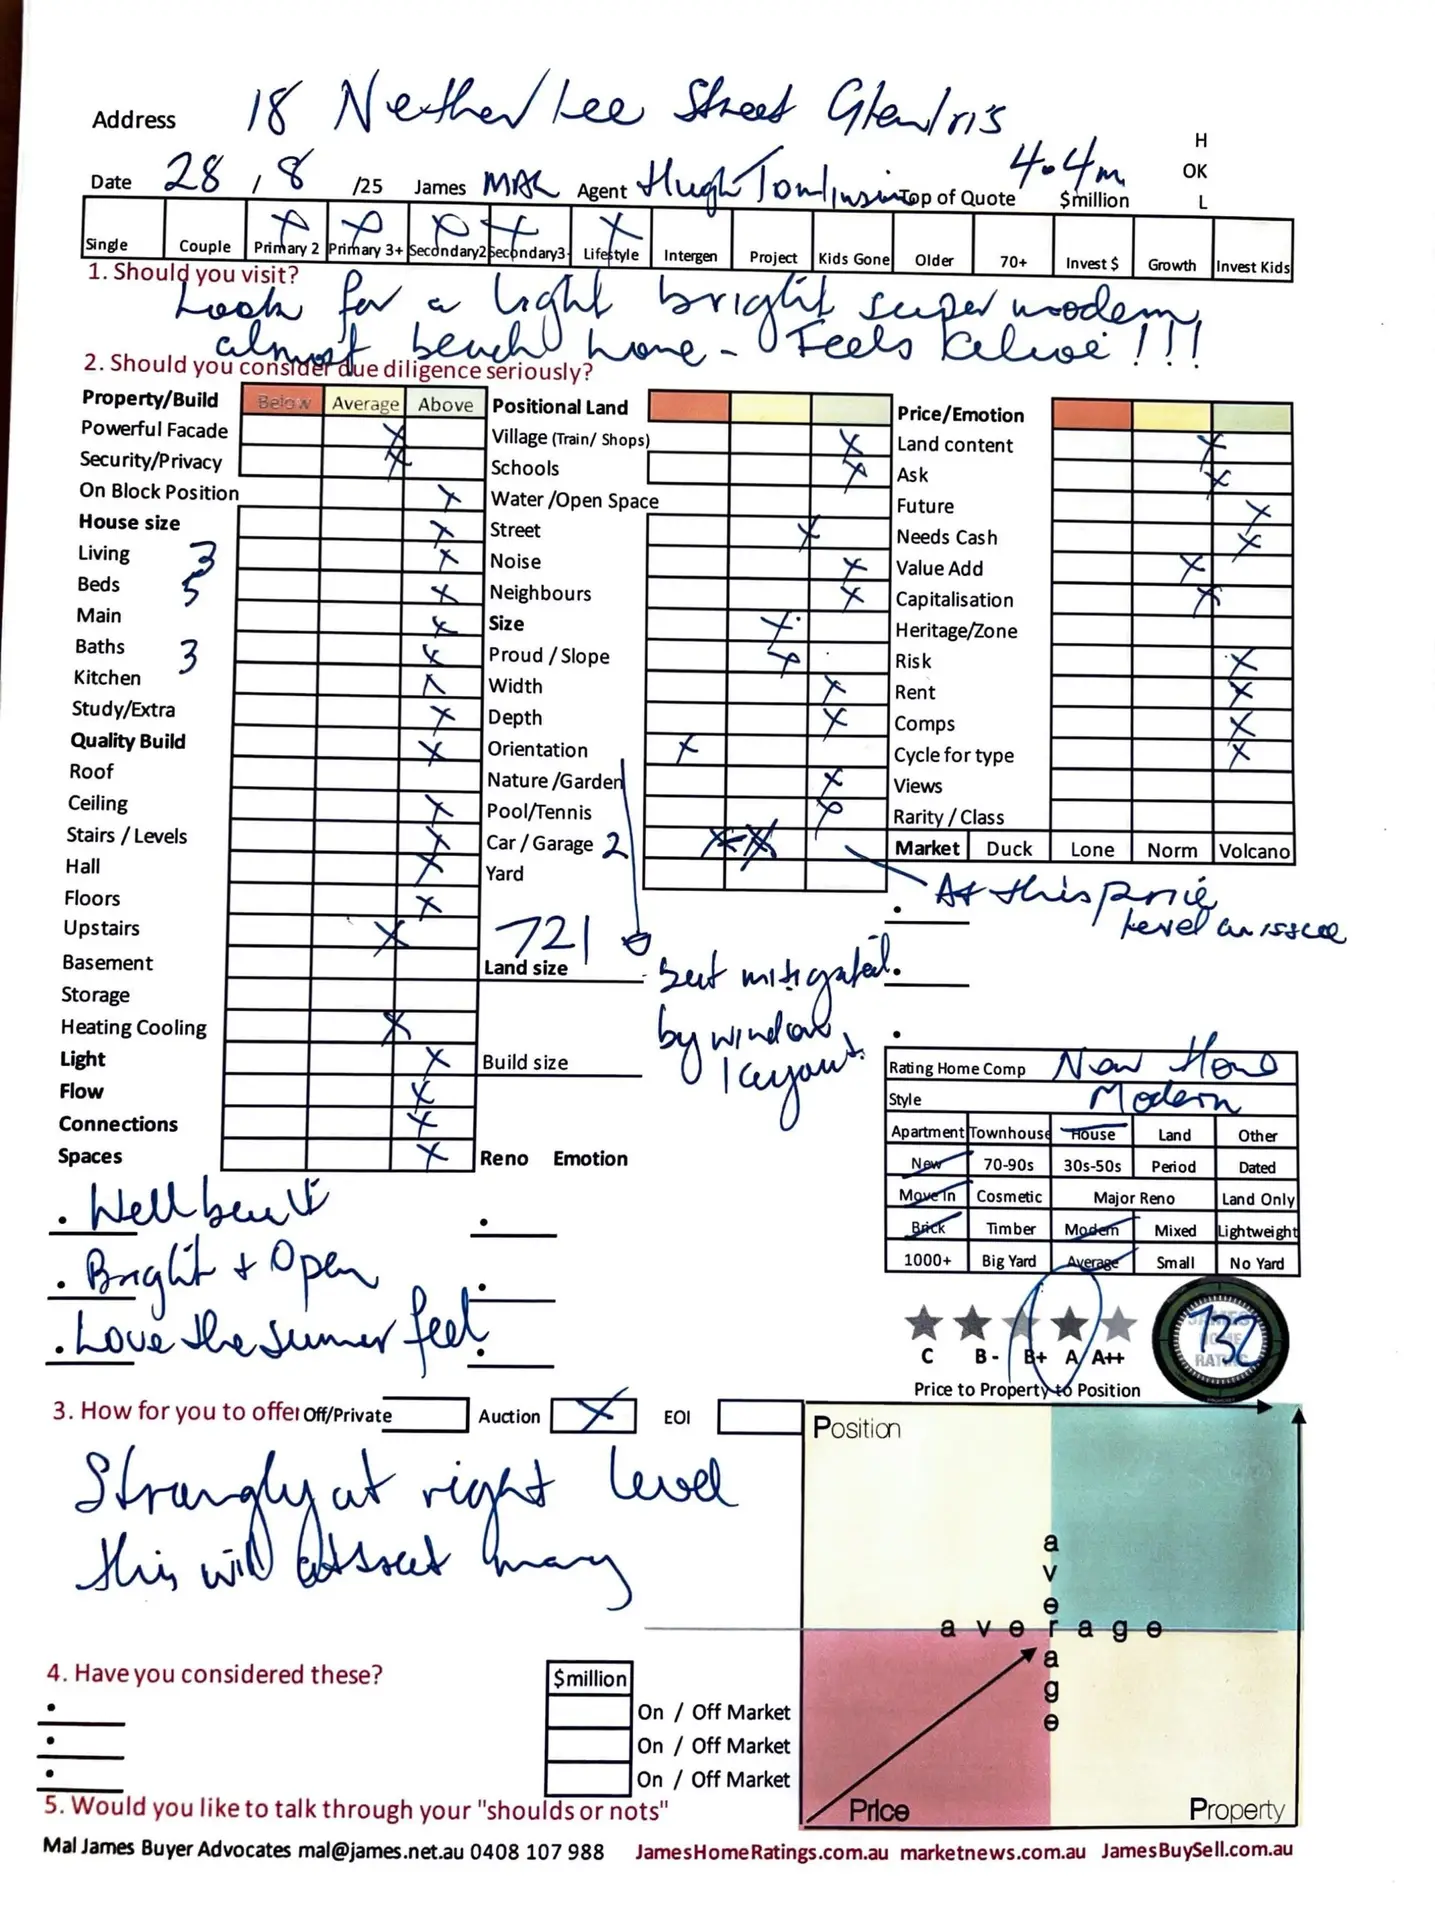 Address 18 Netherlee Street Glen Iris
H
Date 28 / 8 /25 James MAL Agent Hugh Tomlinson Top of Quote 4.4m $million
OK
L
Single Couple Primary 2 Primary 3+ Secondary2 Secondary3 Lifestyle Intergen Project Kids Gone Older 70+ Invest $ Growth Invest Kids
1. Should you visit?
Look for a light bright super modern
almost beach home - Feels alive!!!
2. Should you consider due diligence seriously?
Property/Build Below Average Above
Powerful Facade
Security/Privacy
On Block Position
House size
Living 3
Beds 5
Main
Baths 3
Kitchen
Study/Extra
Quality Build
Roof
Ceiling
Stairs / Levels
Hall
Floors
Upstairs
Basement
Storage
Heating Cooling
Light
Flow
Connections
Spaces
Positional Land
Village (Train/ Shops)
Schools
Water /Open Space
Street
Noise
Neighbours
Size
Proud / Slope
Width
Depth
Orientation
Nature /Garden
Pool/Tennis
Car / Garage 2
Yard
721
Land size
Build size
Reno Emotion
but mitigated
by window
layout
Price/Emotion
Land content
Ask
Future
Needs Cash
Value Add
Capitalisation
Heritage/Zone
Risk
Rent
Comps
Cycle for type
Views
Rarity / Class
Market Duck Lone Norm Volcano
At this price
level an issue
Rating Home Comp New Home
Style Modern
Apartment Townhouse House Land Other
New 70-90s 30s-50s Period Dated
Move In Cosmetic Major Reno Land Only
Brick Timber Modern Mixed Lightweight
1000+ Big Yard Average Small No Yard
. Well built
. Bright + Open
. Love the summer feel
C B- B+ A A++
JAMES HOME RATING
732
Price to Property to Position
3. How for you to offer Off/Private Auction EOI
Strongly at right level
this will attract many
Position
average
average
Price
Property
4. Have you considered these?
$million
On / Off Market
On / Off Market
On / Off Market
5. Would you like to talk through your "shoulds or nots"
Mal James Buyer Advocates mal@james.net.au 0408 107 988 JamesHomeRatings.com.au marketnews.com.au JamesBuySell.com.au